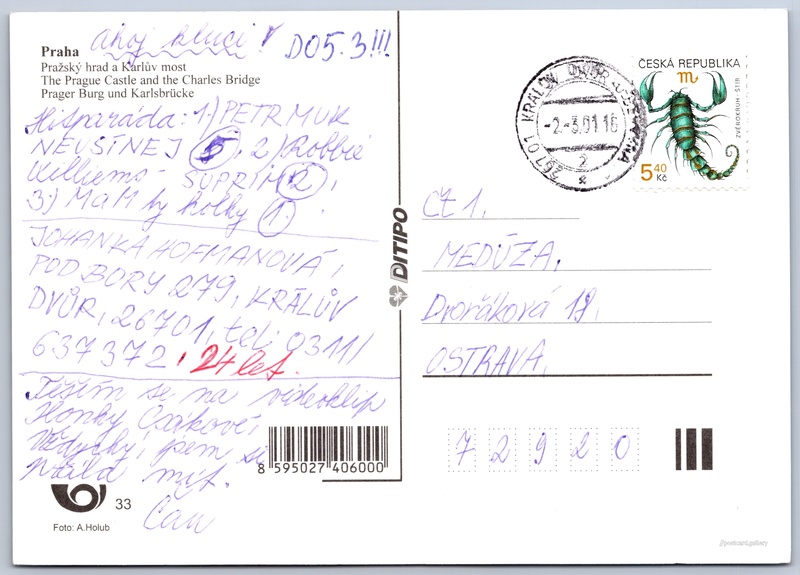 Praha
Pražský hrad a Karlův most
The Prague Castle and the Charles Bridge
Prager Burg und Karlsbrücke
Ahoj kluci! DO 5.3!!!
Hitparáda: 1.) PETR MUK
NEUSÍNEJ 5, 2.) Robbie
Williams - SUPRÍM 2,
3.) MaM by holky 1.
JOHANKA HOFMANOVÁ,
POD BORY 279, KRÁLŮV
DVŮR, 26701, tel: 0311/
637372, 24 let.
Těším se na videoklip
Ilonky Csákové,
Vždycky jsem si
přála mít.
Čau
8 595027 406000
33
Foto: A.Holub
DITIPO
ČESKÁ REPUBLIKA
ZVĚROKRUH - ŠTÍR
5,40
Kč
267 01 KRÁLŮV DVŮR U BEROUNA
-2.-3.01 16
2
ČT 1,
MEDÚZA,
Dvořákova 18,
OSTRAVA,
7 2 9 2 0
postcard.gallery